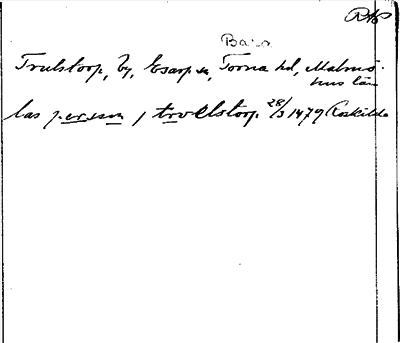 RAP
Bara
Trulstorp, by, Esarp sn, Torna hd, Malmö-
hus län
las persson j troelstorp 28/3 1479 Roskilde